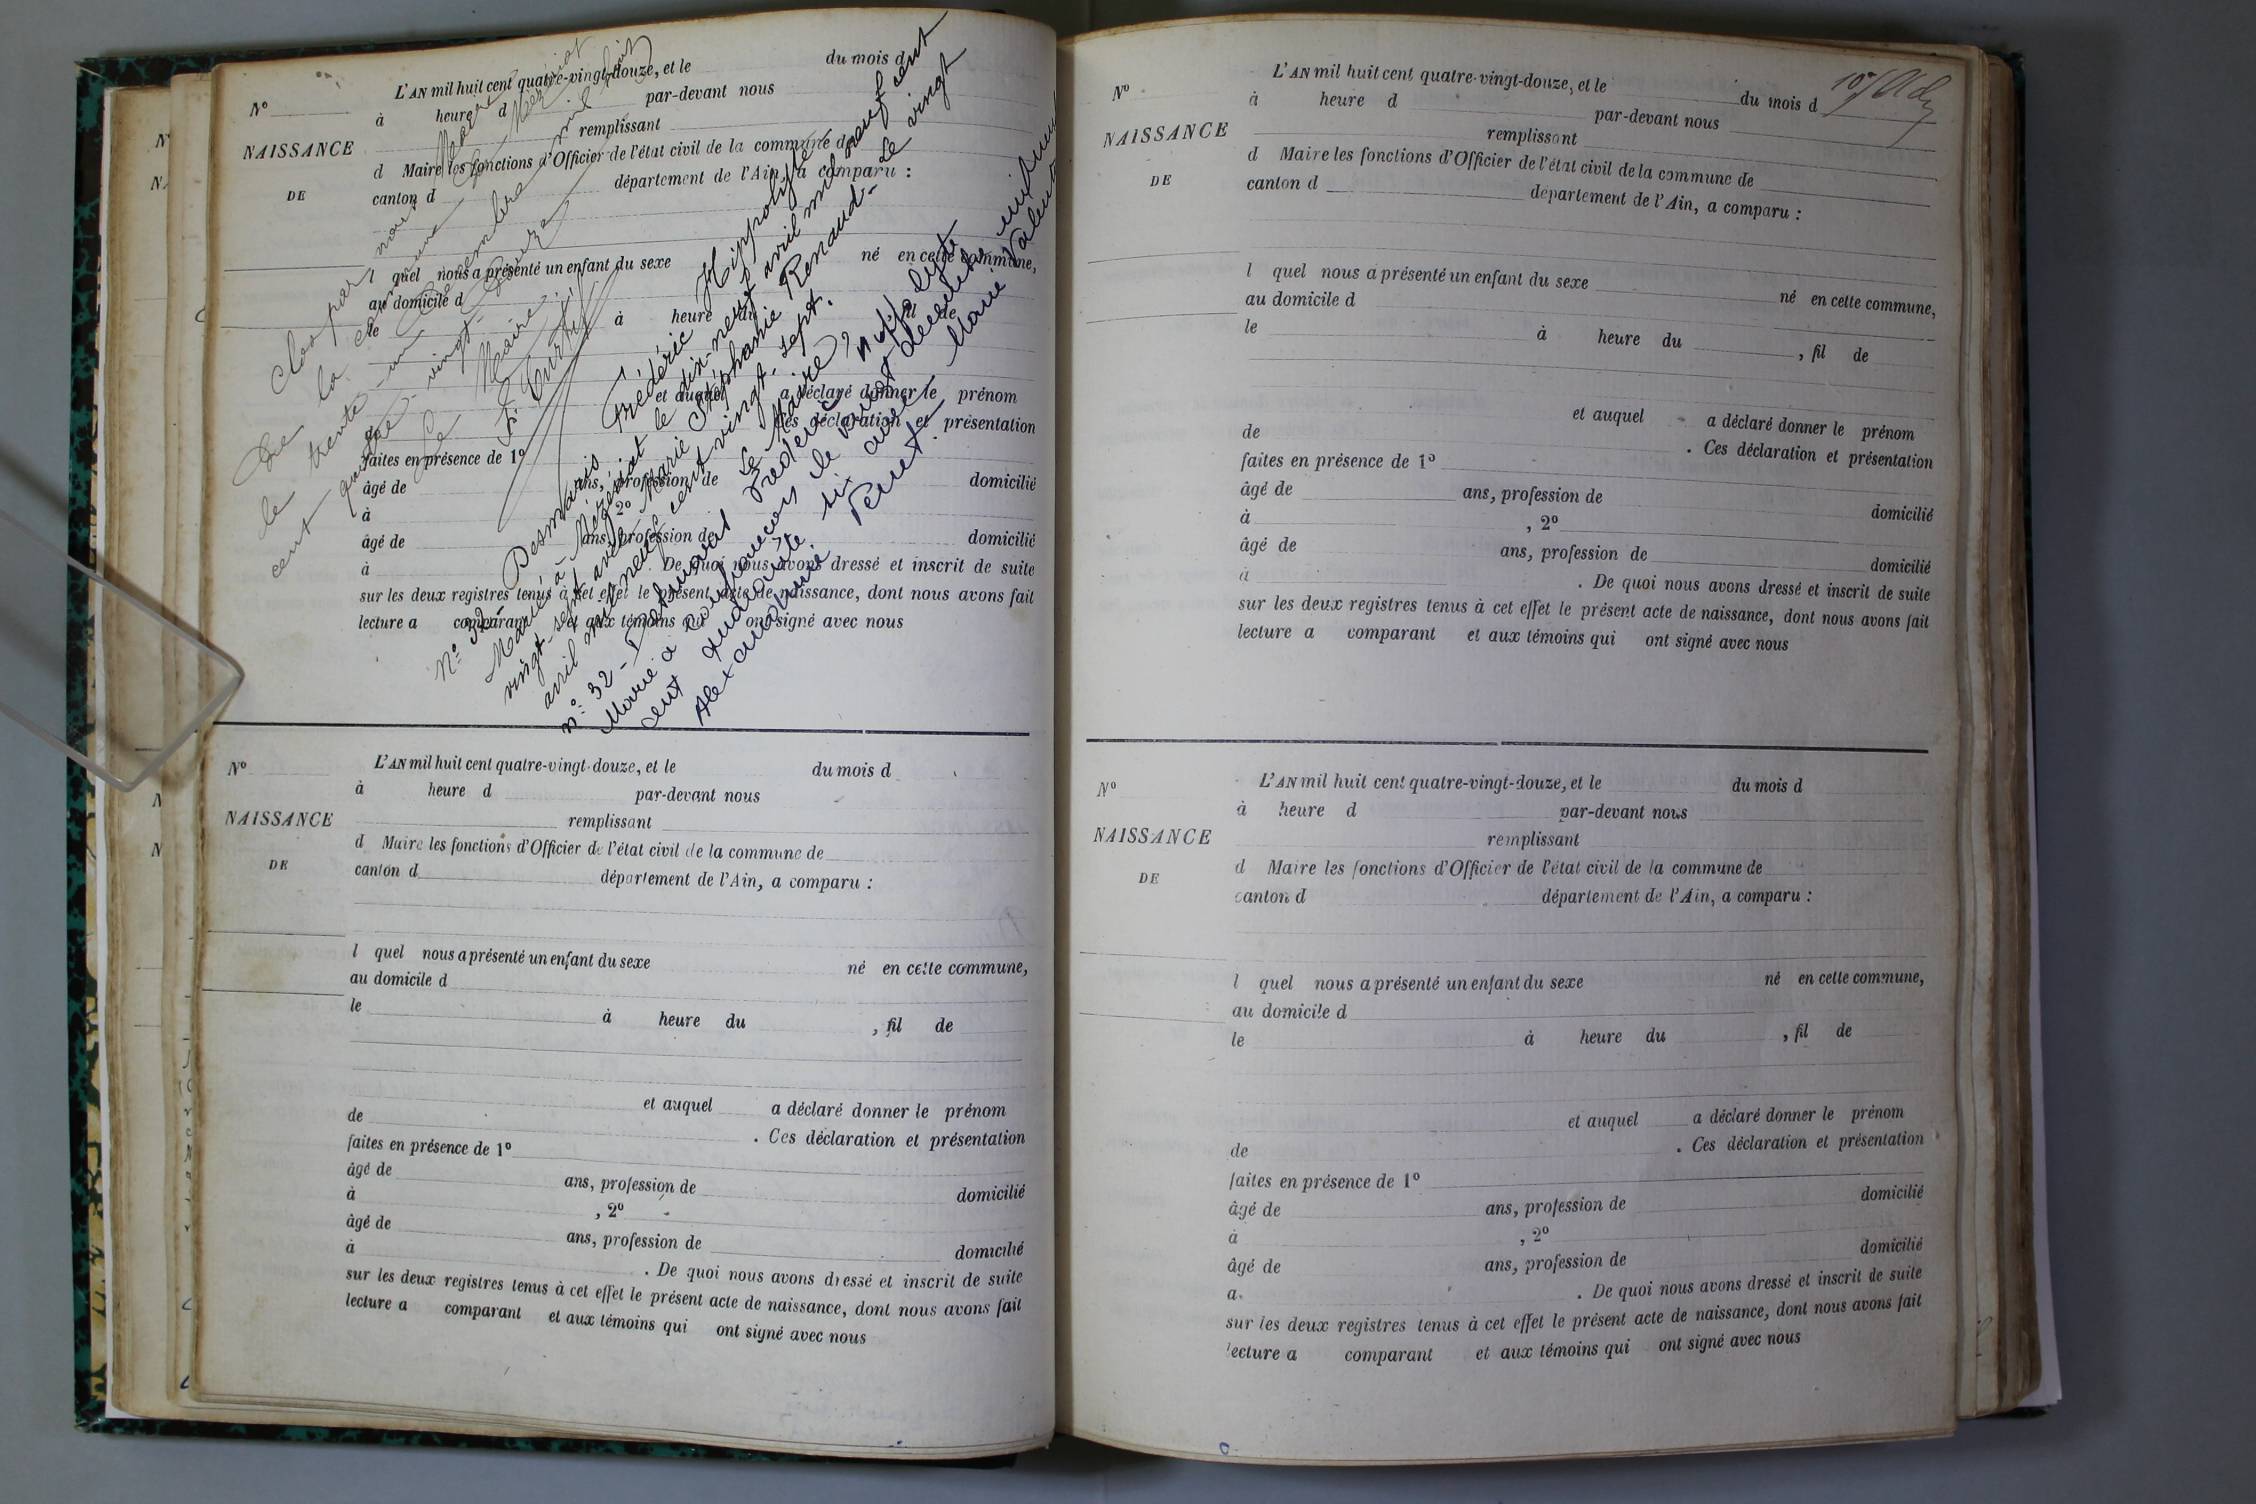 L'AN mil huit cent quatre-vingt-douze, et le du mois d
Nº à heure d par-devant nous
remplissant
NAISSANCE d Maire les fonctions d'Officier de l'état civil de la commune de
DE canton d département de l'Ain, a comparu :
l quel nous a présenté un enfant du sexe né en cette commune,
au domicile d
le à heure du fil de
et auquel a déclaré donner le prénom
de Ces déclaration et présentation
faites en présence de 1º
âgé de ans, profession de domicilié
à 2º
âgé de ans, profession de domicilié
à . De quoi nous avons dressé et inscrit de suite
sur les deux registres tenus à cet effet le présent acte de naissance, dont nous avons fait
lecture a comparant et aux témoins qui ont signé avec nous
Clos par nous Maire
de la commune de Mézériat
le trente-un Décembre mil huit
cent quatre-vingt-douze
Le Maire
Nº 32 Desmaris Frédéric Hippolyte
Marié à Mézériat le dix-neuf avril mil neuf cent
vingt-sept avec Marie Stéphanie Renaud. Le vingt
avril mil neuf cent vingt-sept.
Le Maire
nº 32 - Frédéric Hippolyte
Marié à le vingt décembre mil neuf
cent six avec Marie
Alexandrine Perret.
L'AN mil huit cent quatre-vingt-douze, et le du mois d
Nº à heure d par-devant nous
remplissant
NAISSANCE d Maire les fonctions d'Officier de l'état civil de la commune de
DE canton d département de l'Ain, a comparu :
l quel nous a présenté un enfant du sexe né en cette commune,
au domicile d
le à heure du , fil de
et auquel a déclaré donner le prénom
de . Ces déclaration et présentation
faites en présence de 1º
âgé de ans, profession de domicilié
à , 2º
âgé de ans, profession de domicilié
à . De quoi nous avons dressé et inscrit de suite
sur les deux registres tenus à cet effet le présent acte de naissance, dont nous avons fait
lecture a comparant et aux témoins qui ont signé avec nous
L'AN mil huit cent quatre-vingt-douze, et le du mois d
Nº à heure d par-devant nous
remplissant
NAISSANCE d Maire les fonctions d'Officier de l'état civil de la commune de
DE canton d département de l'Ain, a comparu :
l quel nous a présenté un enfant du sexe né en cette commune,
au domicile d
le à heure du , fil de
et auquel a déclaré donner le prénom
de . Ces déclaration et présentation
faites en présence de 1º
âgé de ans, profession de domicilié
à , 2º
âgé de ans, profession de domicilié
à . De quoi nous avons dressé et inscrit de suite
sur les deux registres tenus à cet effet le présent acte de naissance, dont nous avons fait
lecture a comparant et aux témoins qui ont signé avec nous
L'AN mil huit cent quatre-vingt-douze, et le du mois d
Nº à heure d par-devant nous
remplissant
NAISSANCE d Maire les fonctions d'Officier de l'état civil de la commune de
DE canton d département de l'Ain, a comparu :
l quel nous a présenté un enfant du sexe né en cette commune,
au domicile d
le à heure du , fil de
et auquel a déclaré donner le prénom
de . Ces déclaration et présentation
faites en présence de 1º
âgé de ans, profession de domicilié
à , 2º
âgé de ans, profession de domicilié
a . De quoi nous avons dressé et inscrit de suite
sur les deux registres tenus à cet effet le présent acte de naissance, dont nous avons fait
lecture a comparant et aux témoins qui ont signé avec nous